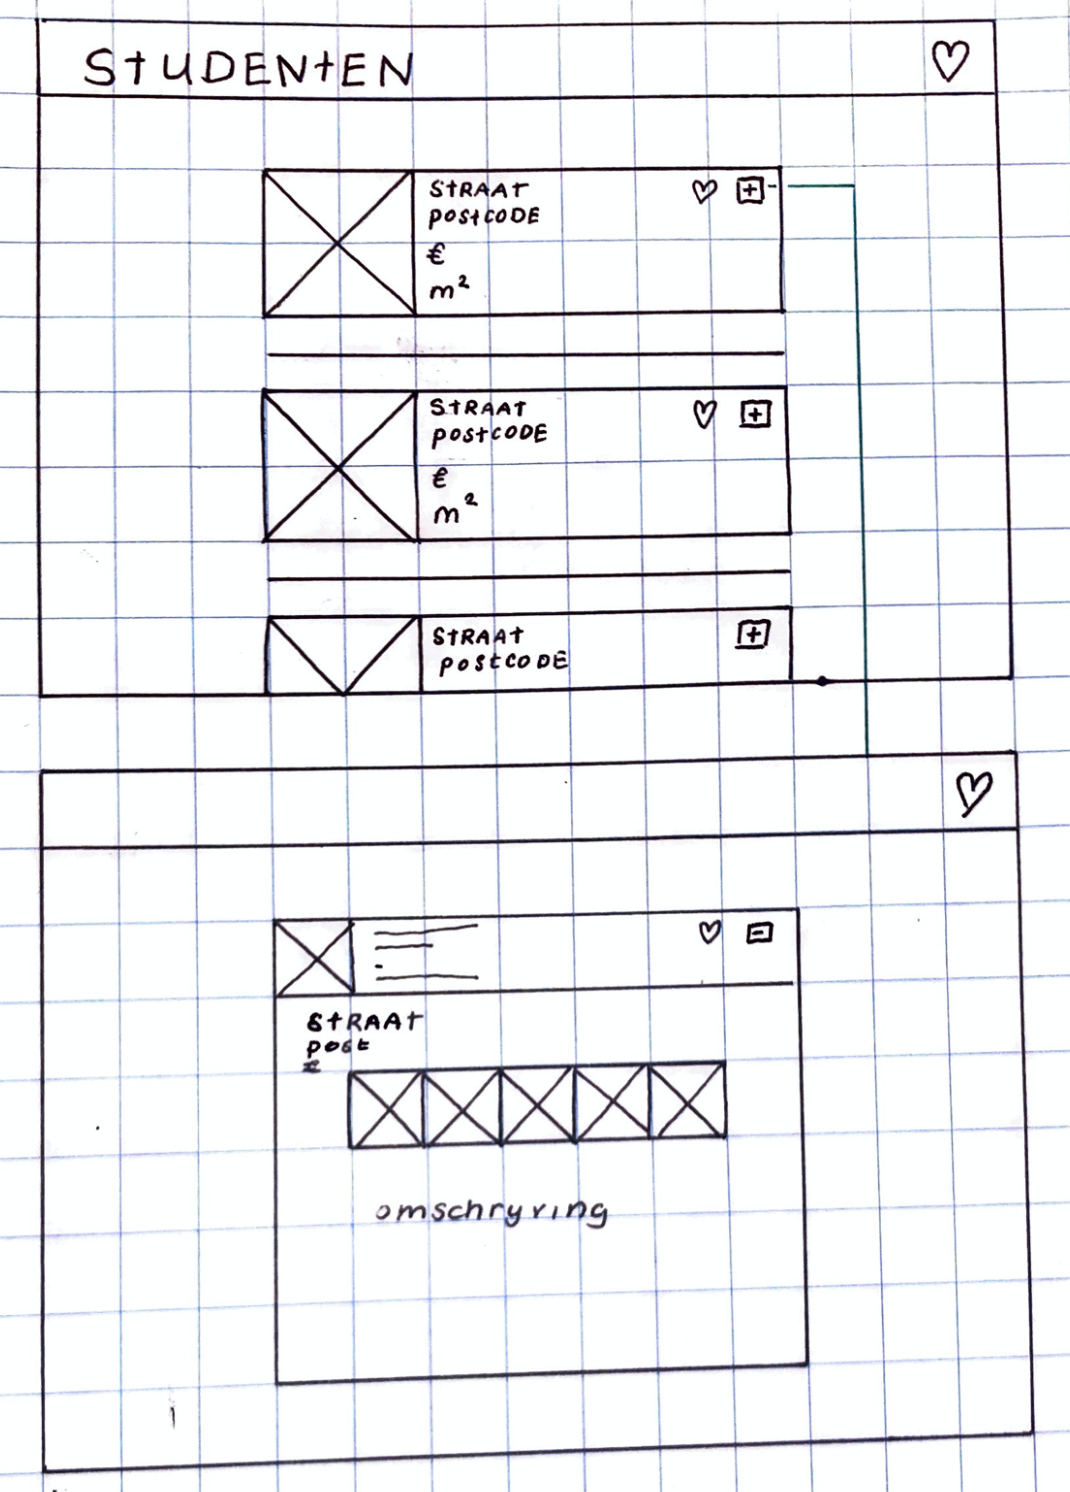 StUDENtEN
StRAAt
postCODE
€
m²
StRAAT
postCODE
€
m²
StRAAt
postCODE
StRAAt
post
omschryving